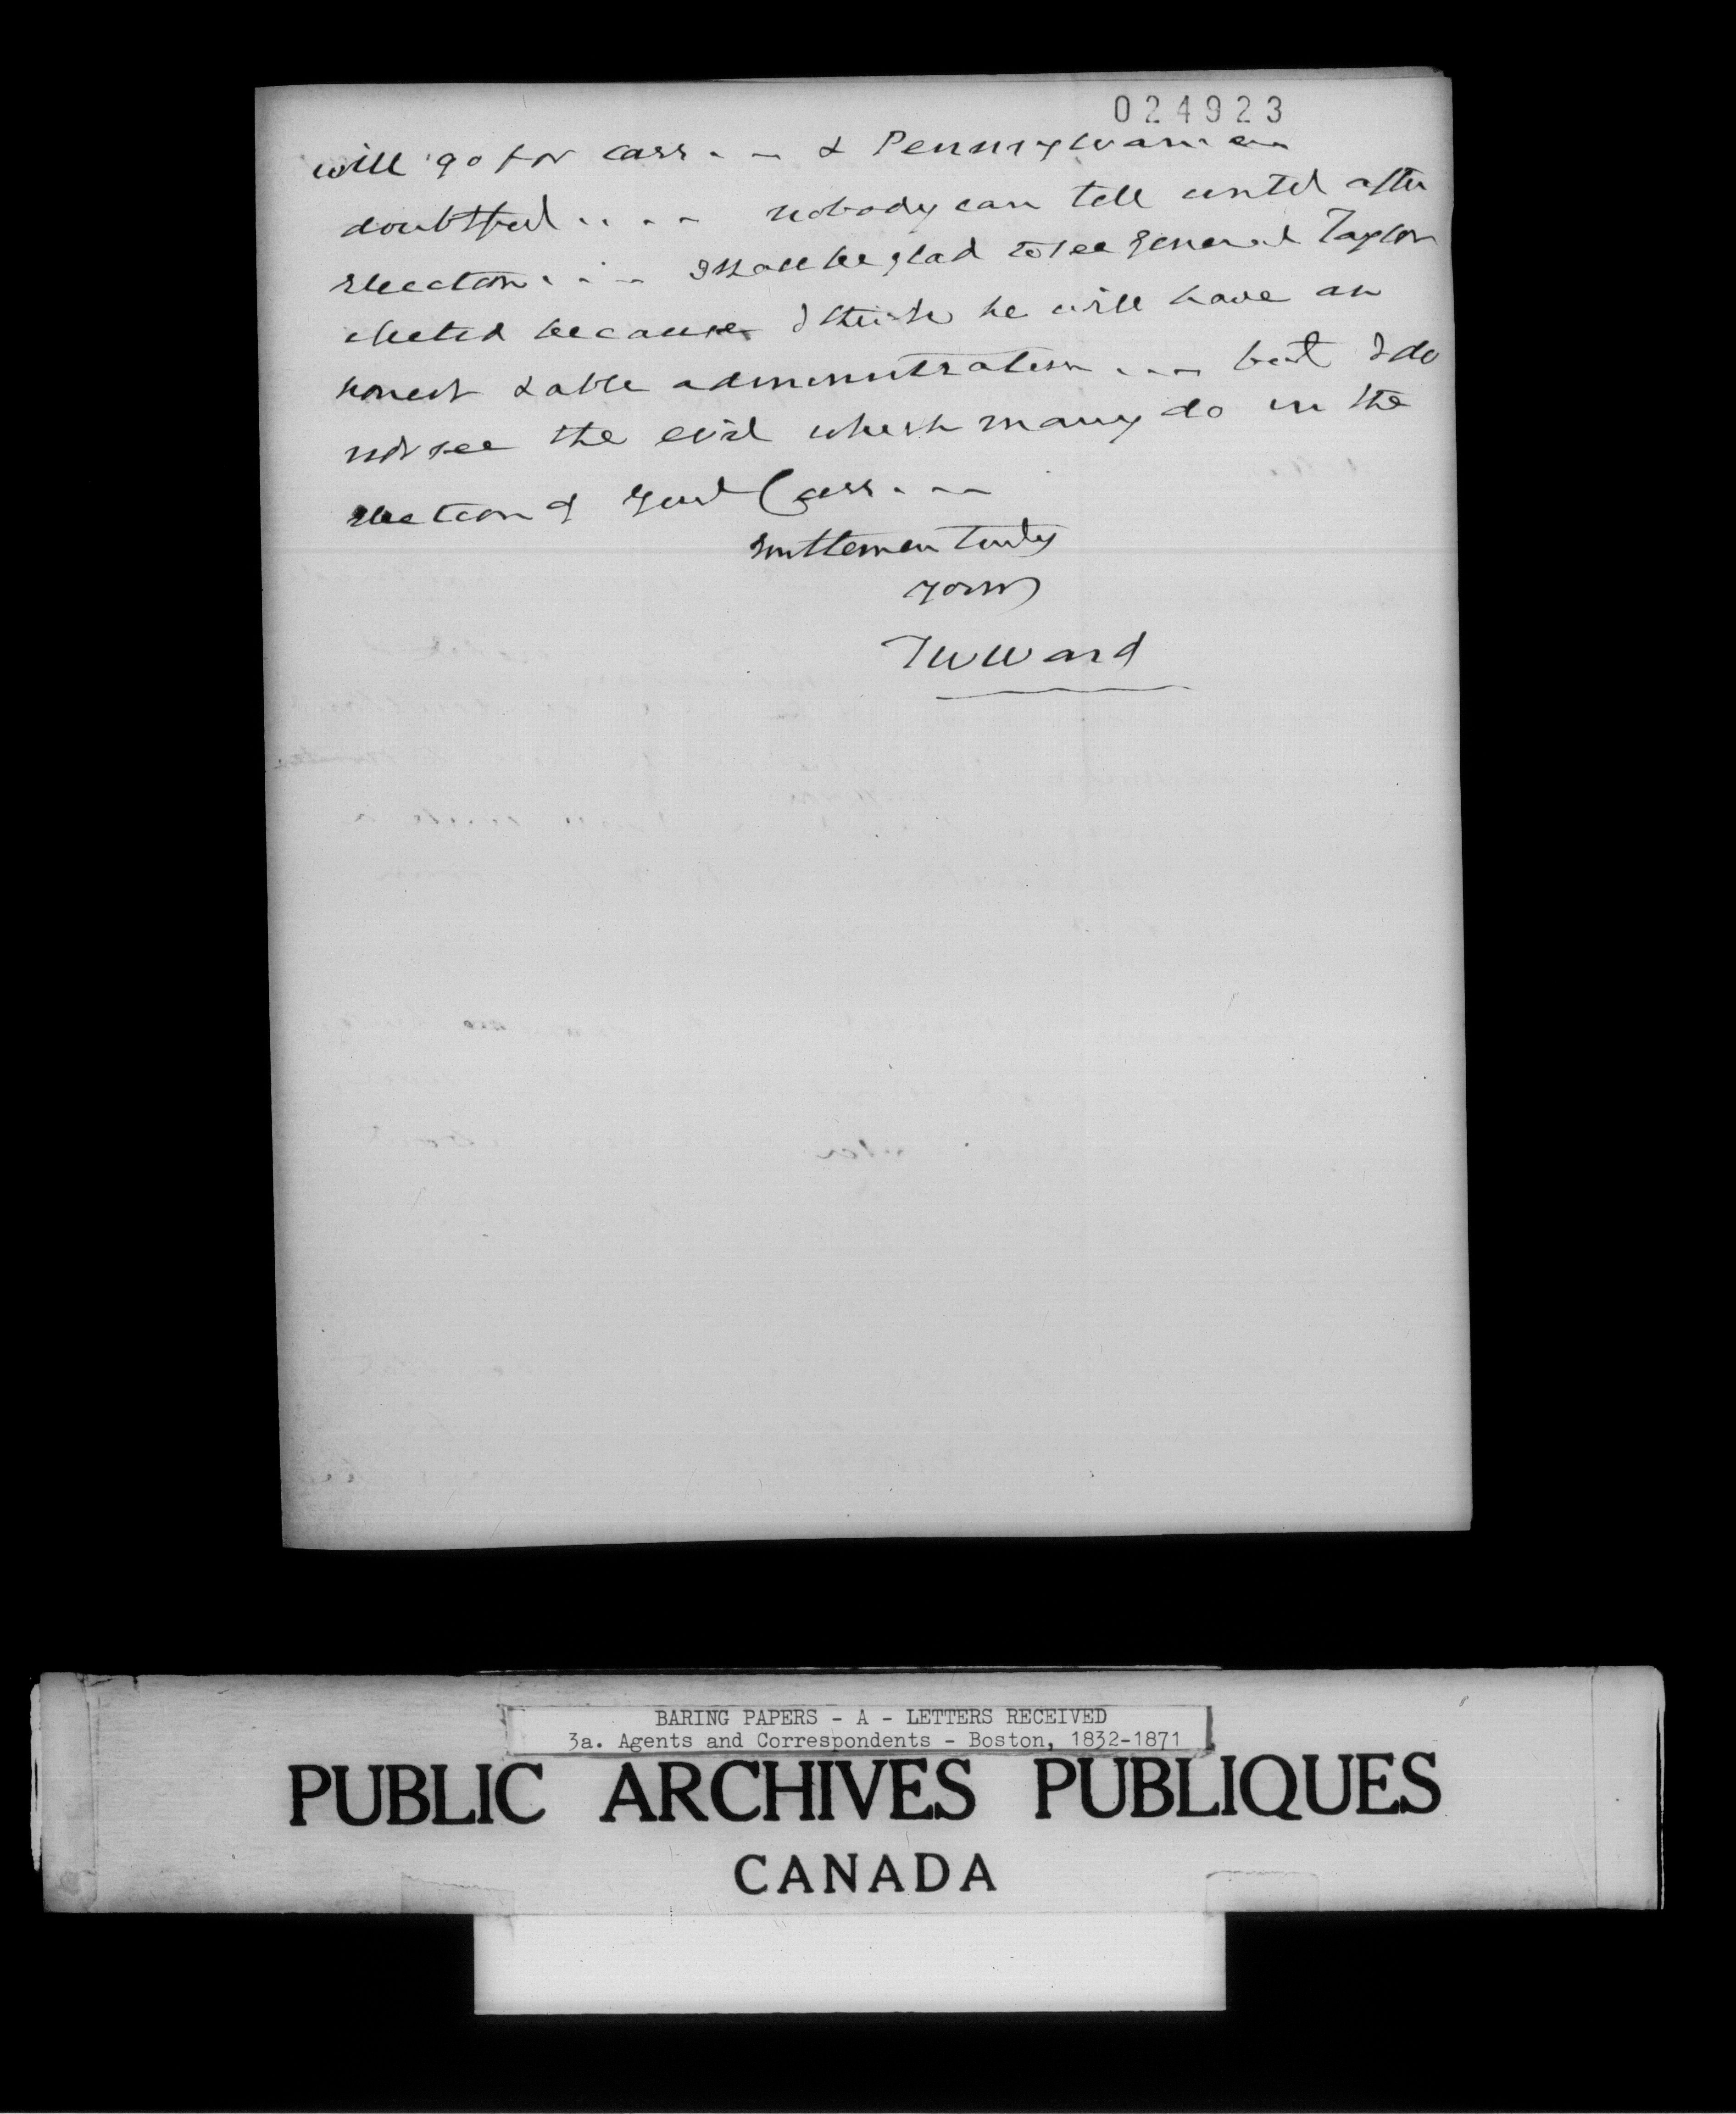 024923
will go for Cass - - & Pennsylvania
doubtful . . . - nobody can tell until after
election . . - I shall be glad to see General Taylor
elected because I think he will have an
honest & able administration . . - but I do
not see the evil which many do in the
election of Genl Cass . - -
Gentlemen Truly
yours
TWWard
BARING PAPERS - A - LETTERS RECEIVED
3a. Agents and Correspondents - Boston, 1832-1871
PUBLIC ARCHIVES PUBLIQUES
CANADA